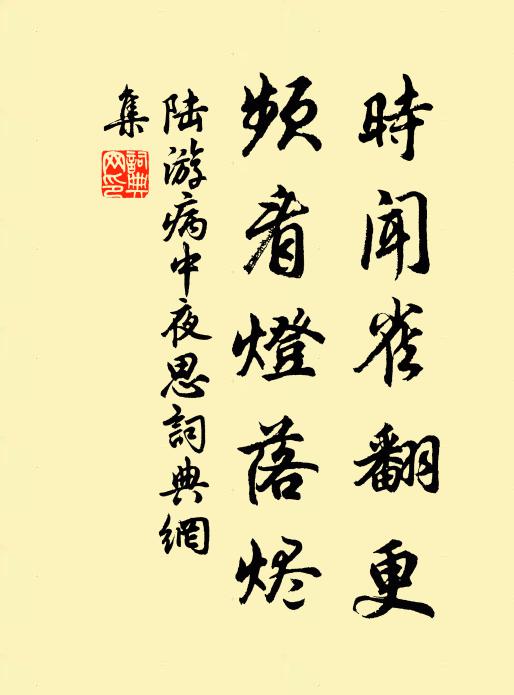 時聞雀翻更
頻看燈落燼
陸游病中夜思詞典網
集
詞典
网印